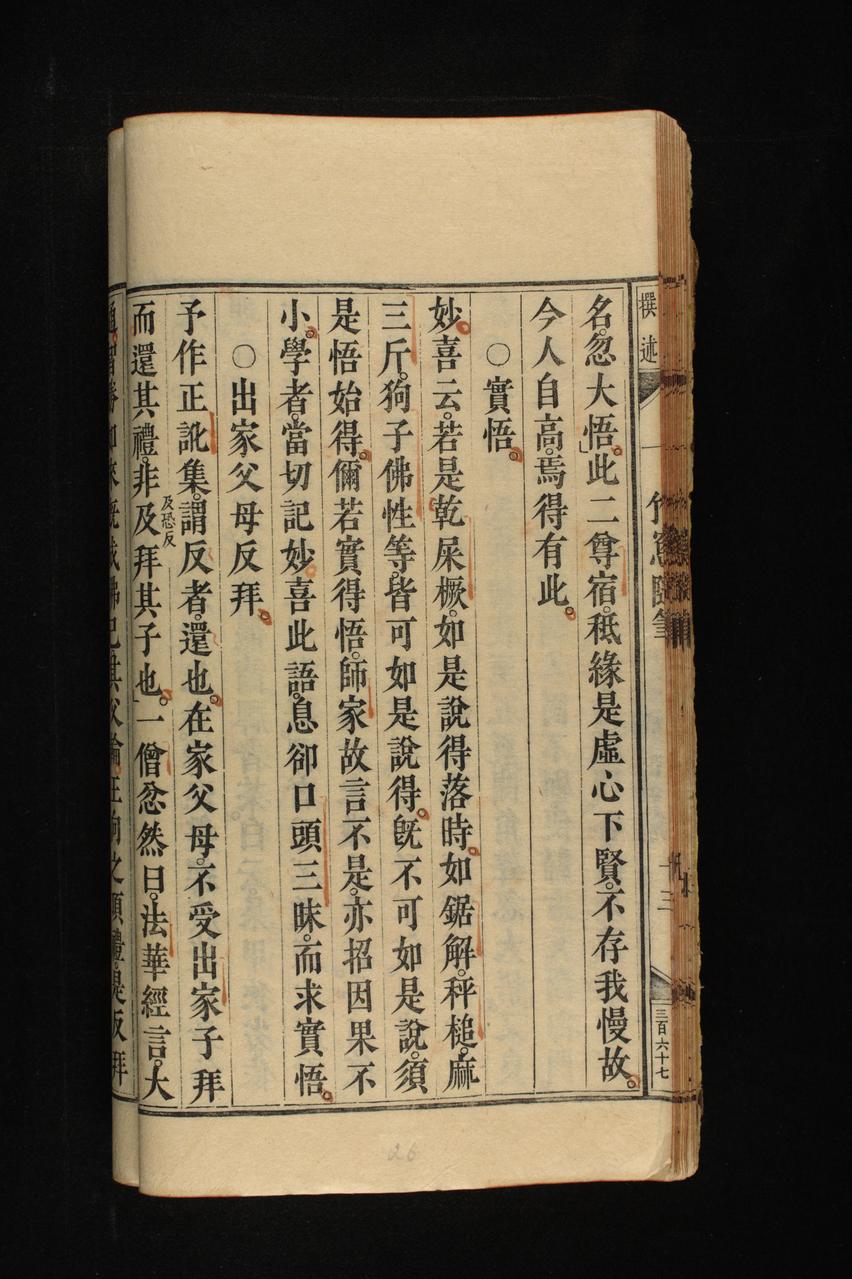 撰述
一
竹窻隨筆
三
三百六十七
名。忽大悟。」此二尊宿。秪緣是虛心下賢。不存我慢故。
今人自高。焉得有此。
○實悟。
妙喜云。若是乾屎橛。如是說得落時。如鋸解。秤槌。麻
三斤。狗子佛性等。皆可如是說得。旣不可如是說。須
是悟始得。儞若實得悟。師家故言不是。亦招因果不
小。學者。當切記妙喜此語。息卻口頭三昧。而求實悟。
○出家父母反拜。
予作正訛集。謂反者。還也。在家父母。不受出家子拜
而還其禮。非及拜其子也。」一僧忿然曰。法華經言。大
及恐反
26